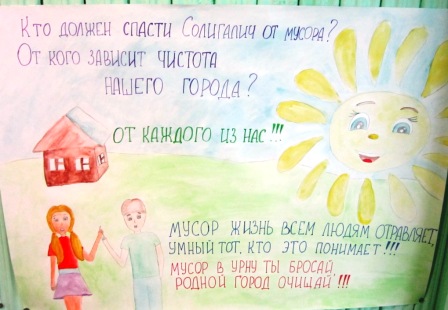 Кто должен спасти Солигалич от мусора?
От кого зависит чистота
нашего города?
от каждого из нас!!!
Мусор жизнь всем людям отравляет,
умный тот, кто это понимает!!!
Мусор в урну ты бросай
родной город очищай!!!